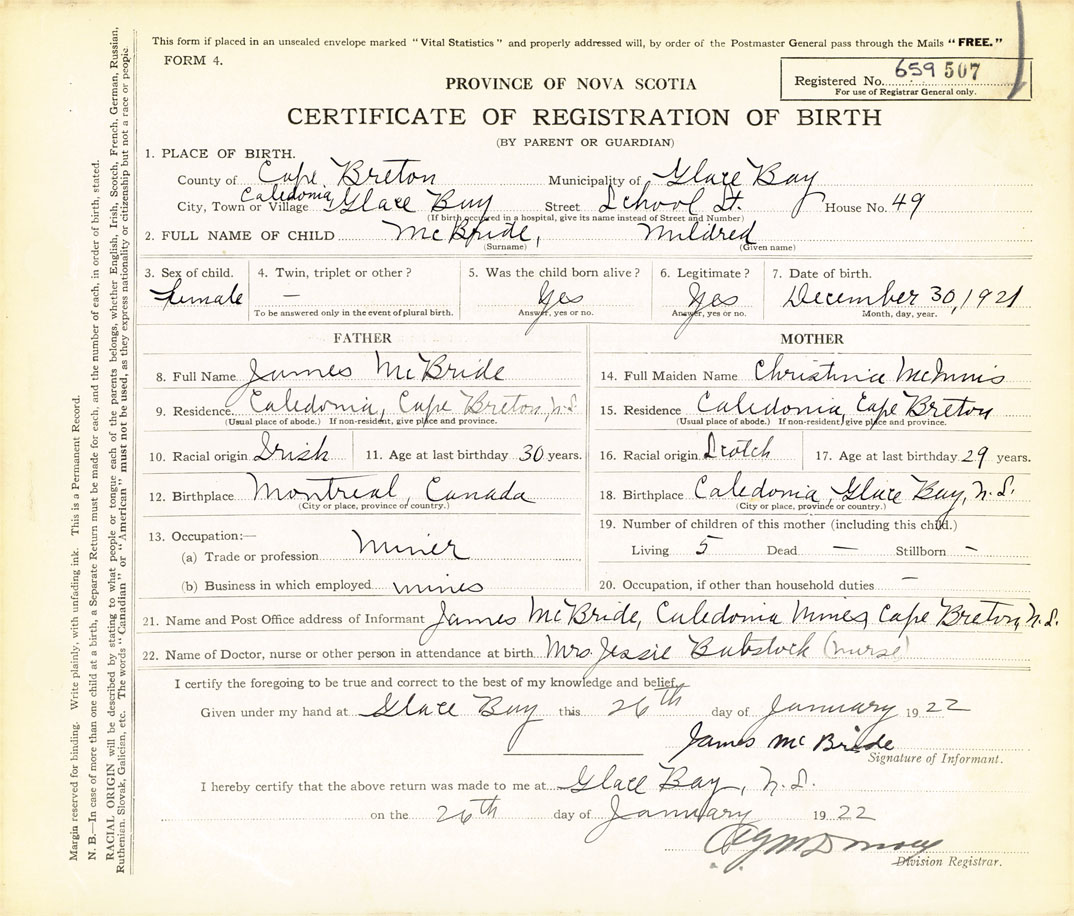 This form if placed in an unsealed envelope marked "Vital Statistics" and properly addressed will, by order of the Postmaster General pass through the Mails "FREE."
FORM 4.
Registered No. 659 507
For use of Registrar General only.
PROVINCE OF NOVA SCOTIA
CERTIFICATE OF REGISTRATION OF BIRTH
(BY PARENT OR GUARDIAN)
1. PLACE OF BIRTH.
County of Cape Breton Municipality of Glace Bay
City, Town or Village Caledonia, Glace Bay Street School St. House No. 49
(If birth occured in a hospital, give its name instead of Street and Number)
2. FULL NAME OF CHILD McBride, Mildred
(Surname) (Given name)
3. Sex of child. 4. Twin, triplet or other? 5. Was the child born alive? 6. Legitimate? 7. Date of birth.
Female — Yes Yes December 30, 1921
To be answered only in the event of plural birth. Answer, yes or no. Answer, yes or no. Month, day, year.
FATHER
8. Full Name James McBride
9. Residence. Caledonia, Cape Breton, N.S.
(Usual place of abode.) If non-resident, give place and province.
10. Racial origin Irish 11. Age at last birthday 30 years.
12. Birthplace Montreal, Canada
(City or place, province or country.)
13. Occupation:—
(a) Trade or profession Miner
(b) Business in which employed mines
MOTHER
14. Full Maiden Name Christina McInnis
15. Residence Caledonia, Cape Breton
(Usual place of abode.) If non-resident, give place and province.
16. Racial origin Scotch 17. Age at last birthday 29 years.
18. Birthplace Caledonia, Glace Bay, N.S.
(City or place, province or country.)
19. Number of children of this mother (including this child.)
Living 5 Dead — Stillborn –
20. Occupation, if other than household duties –
21. Name and Post Office address of Informant James McBride, Caledonia Mines, Cape Breton, N.S.
22. Name of Doctor, nurse or other person in attendance at birth Mrs. Jessie Bubstock (nurse)
I certify the foregoing to be true and correct to the best of my knowledge and belief.
Given under my hand at Glace Bay this 26th day of January 1922
James McBride
Signature of Informant.
I hereby certify that the above return was made to me at Glace Bay, N.S.
on the 26th day of January 1922
Division Registrar.
Margin reserved for binding. Write plainly, with unfading ink. This is a Permanent Record.
N. B.—In case of more than one child at a birth, a Separate Return must be made for each, and the number of each, in order of birth, stated.
RACIAL ORIGIN will be described by stating to what people or tongue each of the parents belongs, whether English, Irish, Scotch, French, German, Russian,
Ruthenian, Slovak, Galician, etc. The words "Canadian" or "American" must not be used, as they express nationality or citizenship but not a race or people.